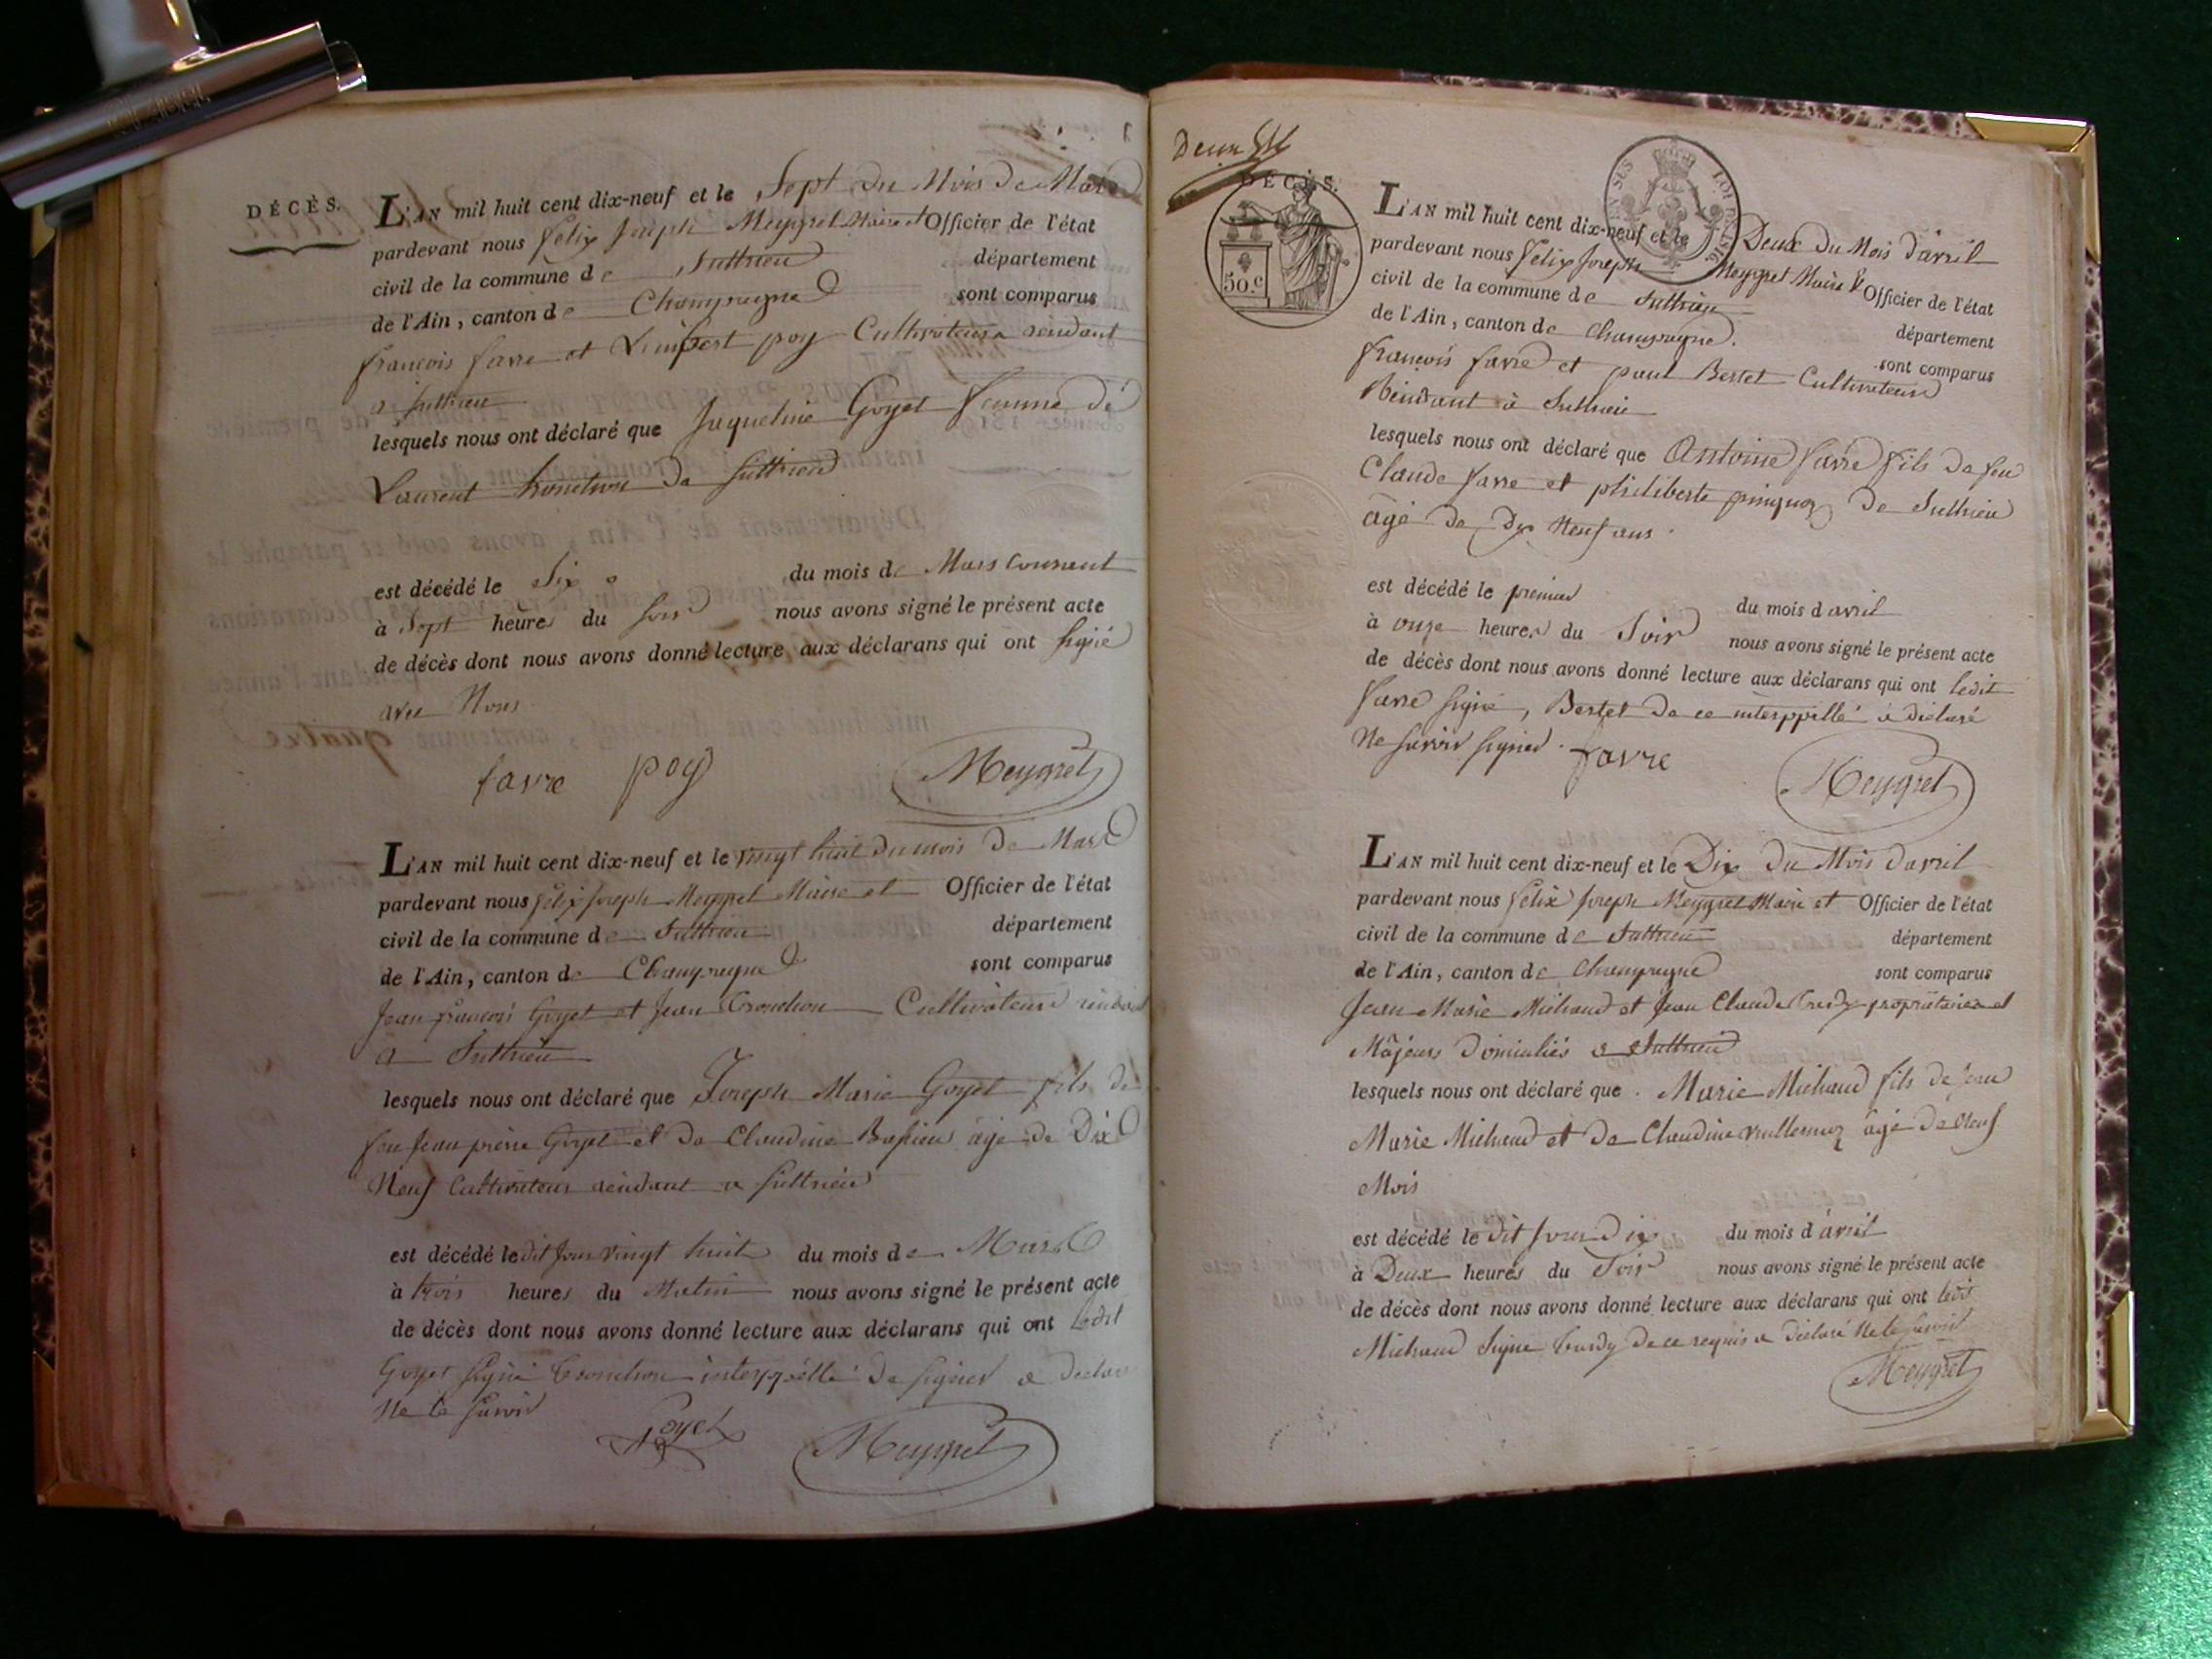 DÉCÈS.
L'AN mil huit cent dix-neuf et le Sept du Mois de Mars
pardevant nous félix Joseph Meygret Maire et Officier de l'état
civil de la commune de Suthrieu département
de l'Ain, canton de Champagne sont comparus
françois favre et Limbert poy Cultivateurs résidant
a suthrieu
lesquels nous ont déclaré que Jaqueline Goyet femme de
Laurent tronchon de suthrieu
est décédé le Six du mois de Mars Courrent
à Sept heures du soir nous avons signé le présent acte
de décès dont nous avons donné lecture aux déclarans qui ont signé
avec Nous
favre poy Meygret
L'AN mil huit cent dix-neuf et le vingt huit du mois de Mars
pardevant nous félix Joseph Meygret Maire et Officier de l'état
civil de la commune de Suthrieu département
de l'Ain, canton de Champagne sont comparus
Jean françois Goyet et Jean Tronchon Cultivateurs
a Suthrieu
lesquels nous ont déclaré que Joseph Marie Goyet fils de
feu Jean pierre Goyet et de Claudine âge de Dix
Neuf Cultivateur résidant a suthrieu
est décédé le dit Jour vingt huit du mois de Mars
à trois heures du Matin nous avons signé le présent acte
de décès dont nous avons donné lecture aux déclarans qui ont Ledit
Goyet signé Tronchon interppéllé de signer a declaré
Ne le savoir
Goyet Meygret
Deux
DÉCÈS.
50.c
EN SUS
L'AN mil huit cent dix-neuf et le Deux du Mois d'avril
pardevant nous félix Joseph Meygret Maire & Officier de l'état
civil de la commune de Suthrieu département
de l'Ain, canton de Champagne. sont comparus
françois favre et paul Bertet Cultivateurs
Résidant à Suthrieu
lesquels nous ont déclaré que Antoine favre fils de feu
Claude favre et philiberte de Suthrieu
âgé de Dix Neuf ans
est décédé le premier du mois d avril
à onze heures du Soir nous avons signé le présent acte
de décès dont nous avons donné lecture aux déclarans qui ont ledit
favre signé, Bertet de ce interppéllé a déclaré
Ne savoir signer. favre
Meygret
L'AN mil huit cent dix-neuf et le Dix du Mois d avril
pardevant nous félix Joseph Meygret Maire et Officier de l'état
civil de la commune de Suthrieu département
de l'Ain, canton de Champagne sont comparus
Jean Marie Michaud et Jean Claude propriétaires et
Majeurs Domiciliés a Suthrieu
lesquels nous ont déclaré que Marie Michaud fils de Jean
Marie Michaud et de Claudine âgé de Neuf
Mois
est décédé le dit jour dix du mois d avril
à Deux heures du Soir nous avons signé le présent acte
de décès dont nous avons donné lecture aux déclarans qui ont ledit
Michaud Signe de ce requis a déclaré Ne le savoir
Meygret